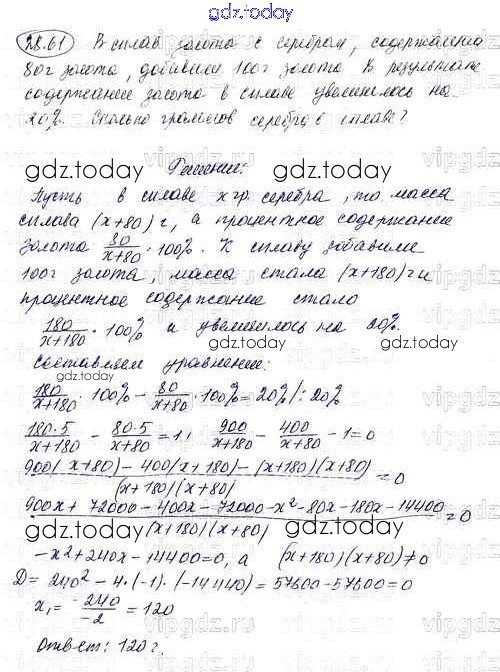 gdz.today
28.61 В сплав золота с серебром, содержащий
80г золота, добавили 100г золота. В результате
содержание золота в сплаве увеличилось на
20%. Сколько граммов серебра в сплаве?
gdz.today gdz.today
Решение:
Пусть в сплаве x гр. серебра, то масса
сплава (x+80) г, а процентное содержание
золота 80/(x+80) · 100%. К сплаву добавили
100г золота, масса стала (x+180) г и
процентное содержание стало
180/(x+180) · 100% и увеличилось на 20%.
Составляем уравнение:
gdz.today gdz.today
180/(x+180) · 100% - 80/(x+80) · 100% = 20% |: 20%
180·5/(x+180) - 80·5/(x+80) = 1; 900/(x+180) - 400/(x+80) - 1 = 0
(900(x+80) - 400(x+180) - (x+180)(x+80))/((x+180)(x+80)) = 0
gdz.today gdz.today
(900x + 72000 - 400x - 72000 - x² - 80x - 180x - 14400)/((x+180)(x+80)) = 0
gdz.today gdz.today
-x² + 240x - 14400 = 0, а (x+180)(x+80) ≠ 0
D = 240² - 4·(-1)·(-14440) = 57600 - 57600 = 0
x₁ = -240/-2 = 120
Ответ: 120г.
gdz.today gdz.today